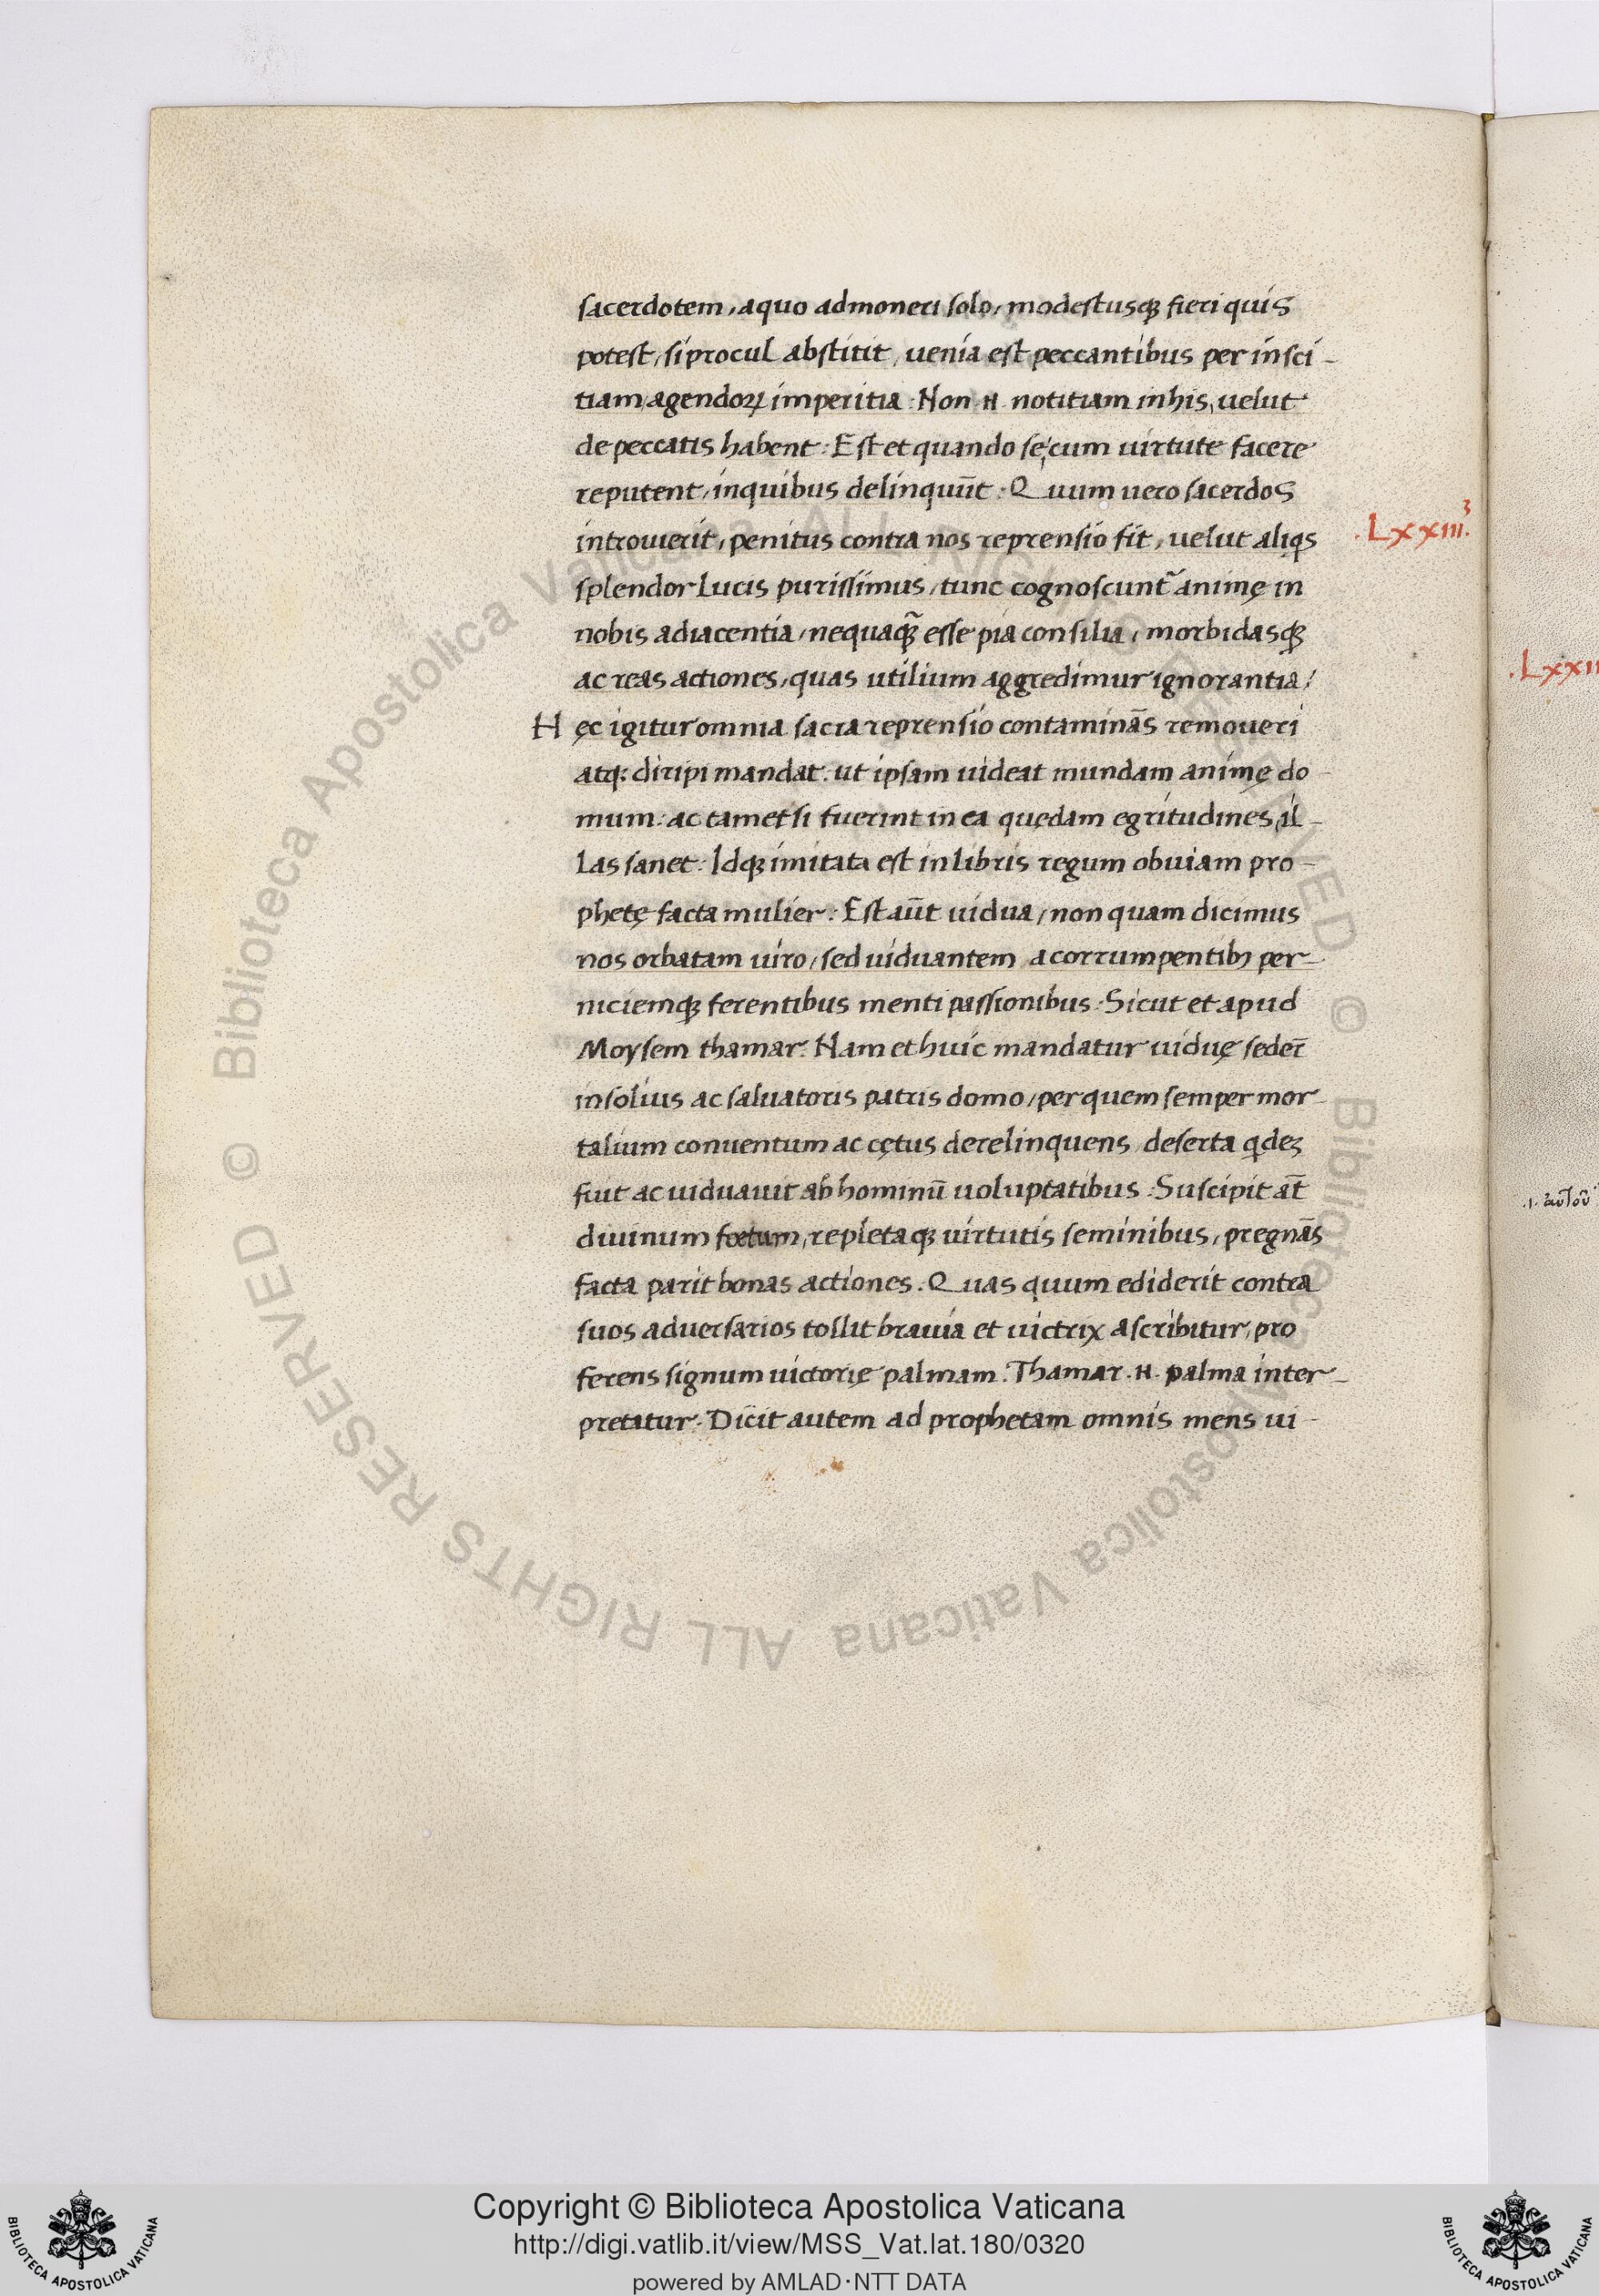 sacerdotem, aquo admoneri solo, modestusqꝫ fieri quis
potest, si procul abstitit, uenia est peccantibus per insci-
tiam, agendoꝝ imperitia. Non .n. notitiam in his, uelut
de peccatis habent: Est et quando se cum uirtute facere
reputent, in quibus delinquūt: Quum uero sacerdos
introiuerit, penitus contra nos reprensio fit, uelut aliqs
.Lxxiii.
splendor Lucis purissimus, tunc cognoscunt᷉ animę in
nobis adiacentia, nequaqꝫ̃ esse pia consilia, morbidasqꝫ
ac reas actiones, quas utilium aggredimur ignorantia,
Hęc igitur omnia sacra reprensio contaminās remoueri
atq: diripi mandat: ut ipsam uideat mundam animę do-
mum: ac tametsi fuerint in ea quędam egritudines, il-
Las sanet: Idqꝫ imitata est in libris regum obuiam pro-
phetę facta mulier: Est aūt uidua, non quam dicimus
nos orbatam uiro, sed uiduantem a corrumpentibꝫ per-
niciemqꝫ ferentibus menti passionibus: Sicut et apud
Moysem thamar: Nam et huic mandatur uiduę seder̄
in solius ac saluatoris patris domo, per quem semper mor-
talium conuentum ac cętus derelinquens, deserta qdeꝫ
fuit ac uiduauit ab hominū uoluptatibus: Suscipit āt
diuinum foetum, repletaqꝫ uirtutis seminibus, pregnās
facta parit bonas actiones. Quas quum ediderit contra
suos aduersarios tollit brauia et uictrix ascribitur, pro
ferens signum uictorię palmam. Thamar .n. palma inter-
pretatur. Dicit autem ad prophetam omnis mens ui-
Copyright © Biblioteca Apostolica Vaticana
http://digi.vatlib.it/view/MSS_Vat.lat.180/0320
powered by AMLAD·NTT DATA
BIBLIOTECA APOSTOLICA VATICANA
BIBLIOTECA APOSTOLICA VATICANA
© Biblioteca Apostolica Vaticana ALL RIGHTS RESERVED © Biblioteca Apostolica Vaticana ALL RIGHTS RESERVED